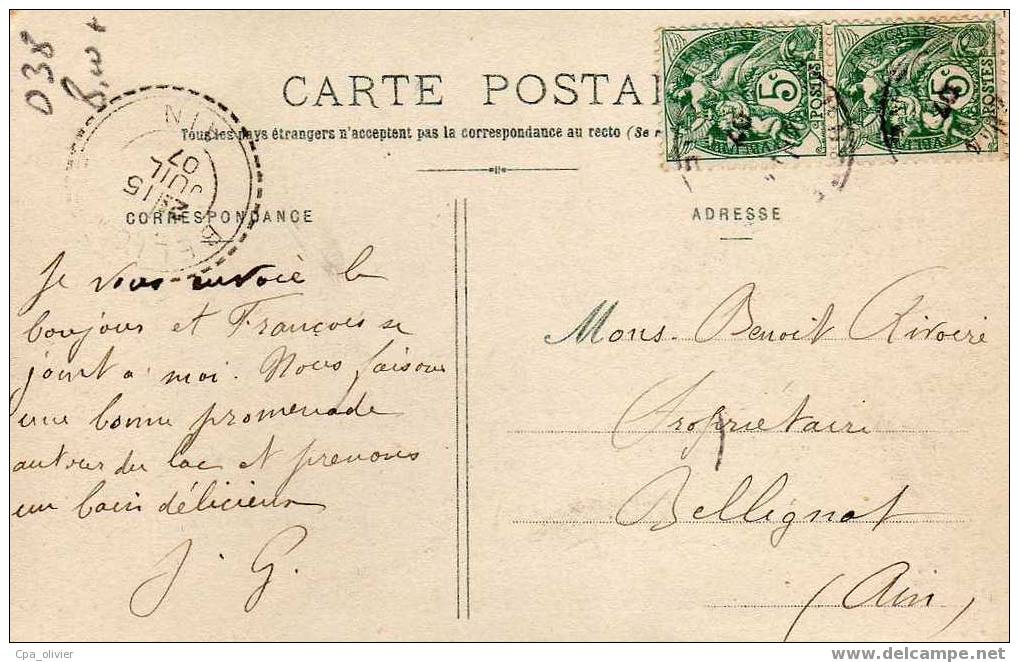 038
CARTE POSTA
Tous les pays étrangers n'acceptent pas la correspondance au recto (Se r
5c
POSTES
5c
POSTES
AIN
15
JUIL
07
CORRESPONDANCE
ADRESSE
Je vous envoie le
bonjour et François se
joint à moi. Nous faisons
une bonne promenade
autour du lac et prenons
un bain délicieux
J. G.
Mons. Benoit Rivoire
Propriétaire
Bellignat
(Ain)
Cpa_olivier
www.delcampe.net